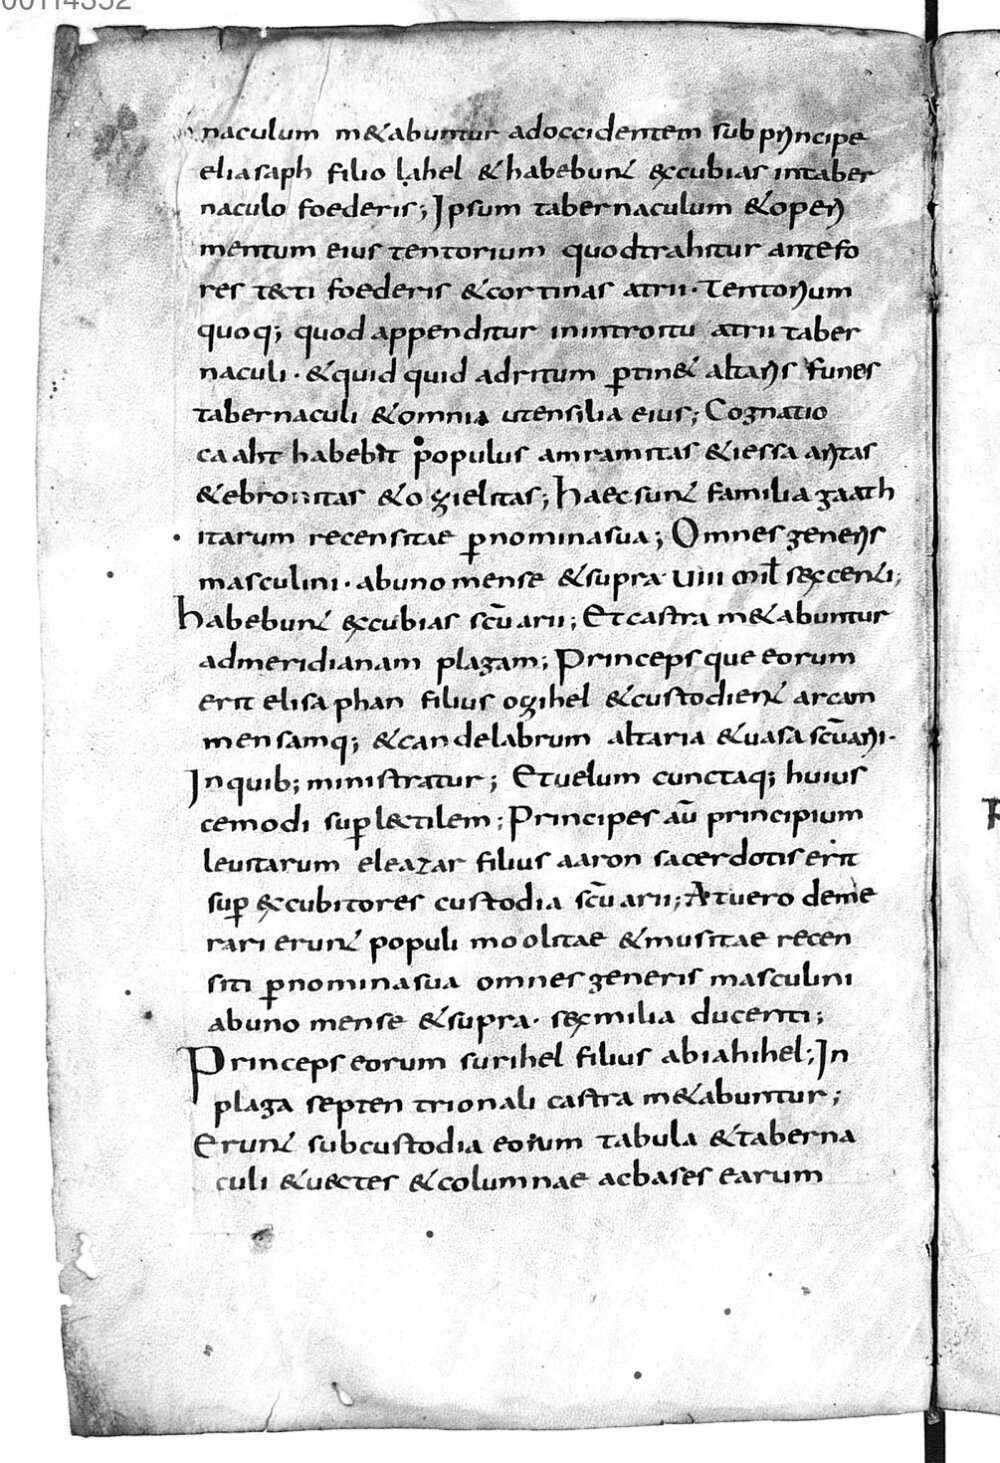 00114352
naculum m&abuntur adoccidentem sub principe
eliasaph filio lahel & habebunt excubias intaber
naculo foederis; Ipsum tabernaculum & operi
mentum eius tentorium quodtrahitur antefo
res tecti foederis & cortinas atrii· Tentorium
quoq; quod appenditur inintroitu atrii taber
naculi· & quid quid adritum ꝑtin& altaris funes
tabernaculi & omnia utensilia eius; Cognatio
caaht habebit populus amramitas & iessaaritas
& ebronitas & ogielitas; haec sunt familia gaath
itarum recensitae ꝑnominasua; Omnes generis
masculini· abuno mense & supra· uiii mił sexcenti;
habebunt excubias scūarii; Et castra m&abuntur
admeridianam plagam; Princeps que eorum
erit elisaphan filius ogihel & custodient arcam
mensamq; & candelabrum altaria & uasa scūarii·
Inquib; ministratur; Et uelum cunctaq; huius
cemodi suꝑlectilem; Principes aū principium
leuitarum eleazar filius aaron sacerdotis erit
suꝑ excubitores custodia scūarii; At uero deme
rari erunt populi moolitae & musitae recen
siti ꝑnominasua omnes generis masculini
abuno mense & supra· sex milia ducenti;
Princeps eorum surihel filius abiahihel; In
plaga septentrionali castra m&abuntur;
Erunt subcustodia eorum tabula & taberna
culi & uectes & columnae acbases earum